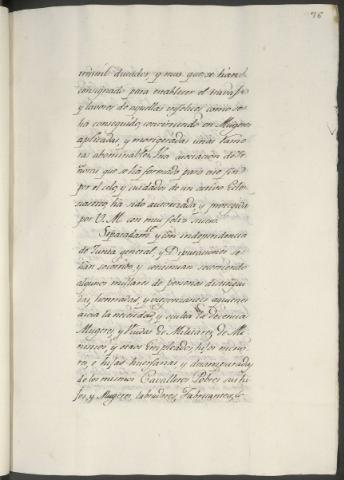 76
mil ducados, y mas que se han
consignado para establecer el travajo
y lavores de aquellas infelices, como se
ha conseguido, convirtiendo en Mugeres
aplicadas, y morigeradas unas
abominables. Una asociacion de Se-
ñoras que se ha formado para este fin
por el celo, y cuidados de un activo Ecle-
siastico, ha sido autorizada, y protegida
por V. M. con muy feliz suceso.
Separadamte. y con independencia
de Junta general, y Diputaciones se
han socorrido, y continuan socorriendo
algunos millares de personas distingui-
das, honrradas, y vergonzantes a quienes
la necesidad, y oculta la decencia.
Mugeres, y Viudas de Militares, de Mi-
nistros, y otros Empleados, hijos meno-
res, e hijas huerfanas y desamparadas
de los mismos. Cavalleros Pobres sus hi-
jos, y Mugeres, labradores, Fabricantes, y